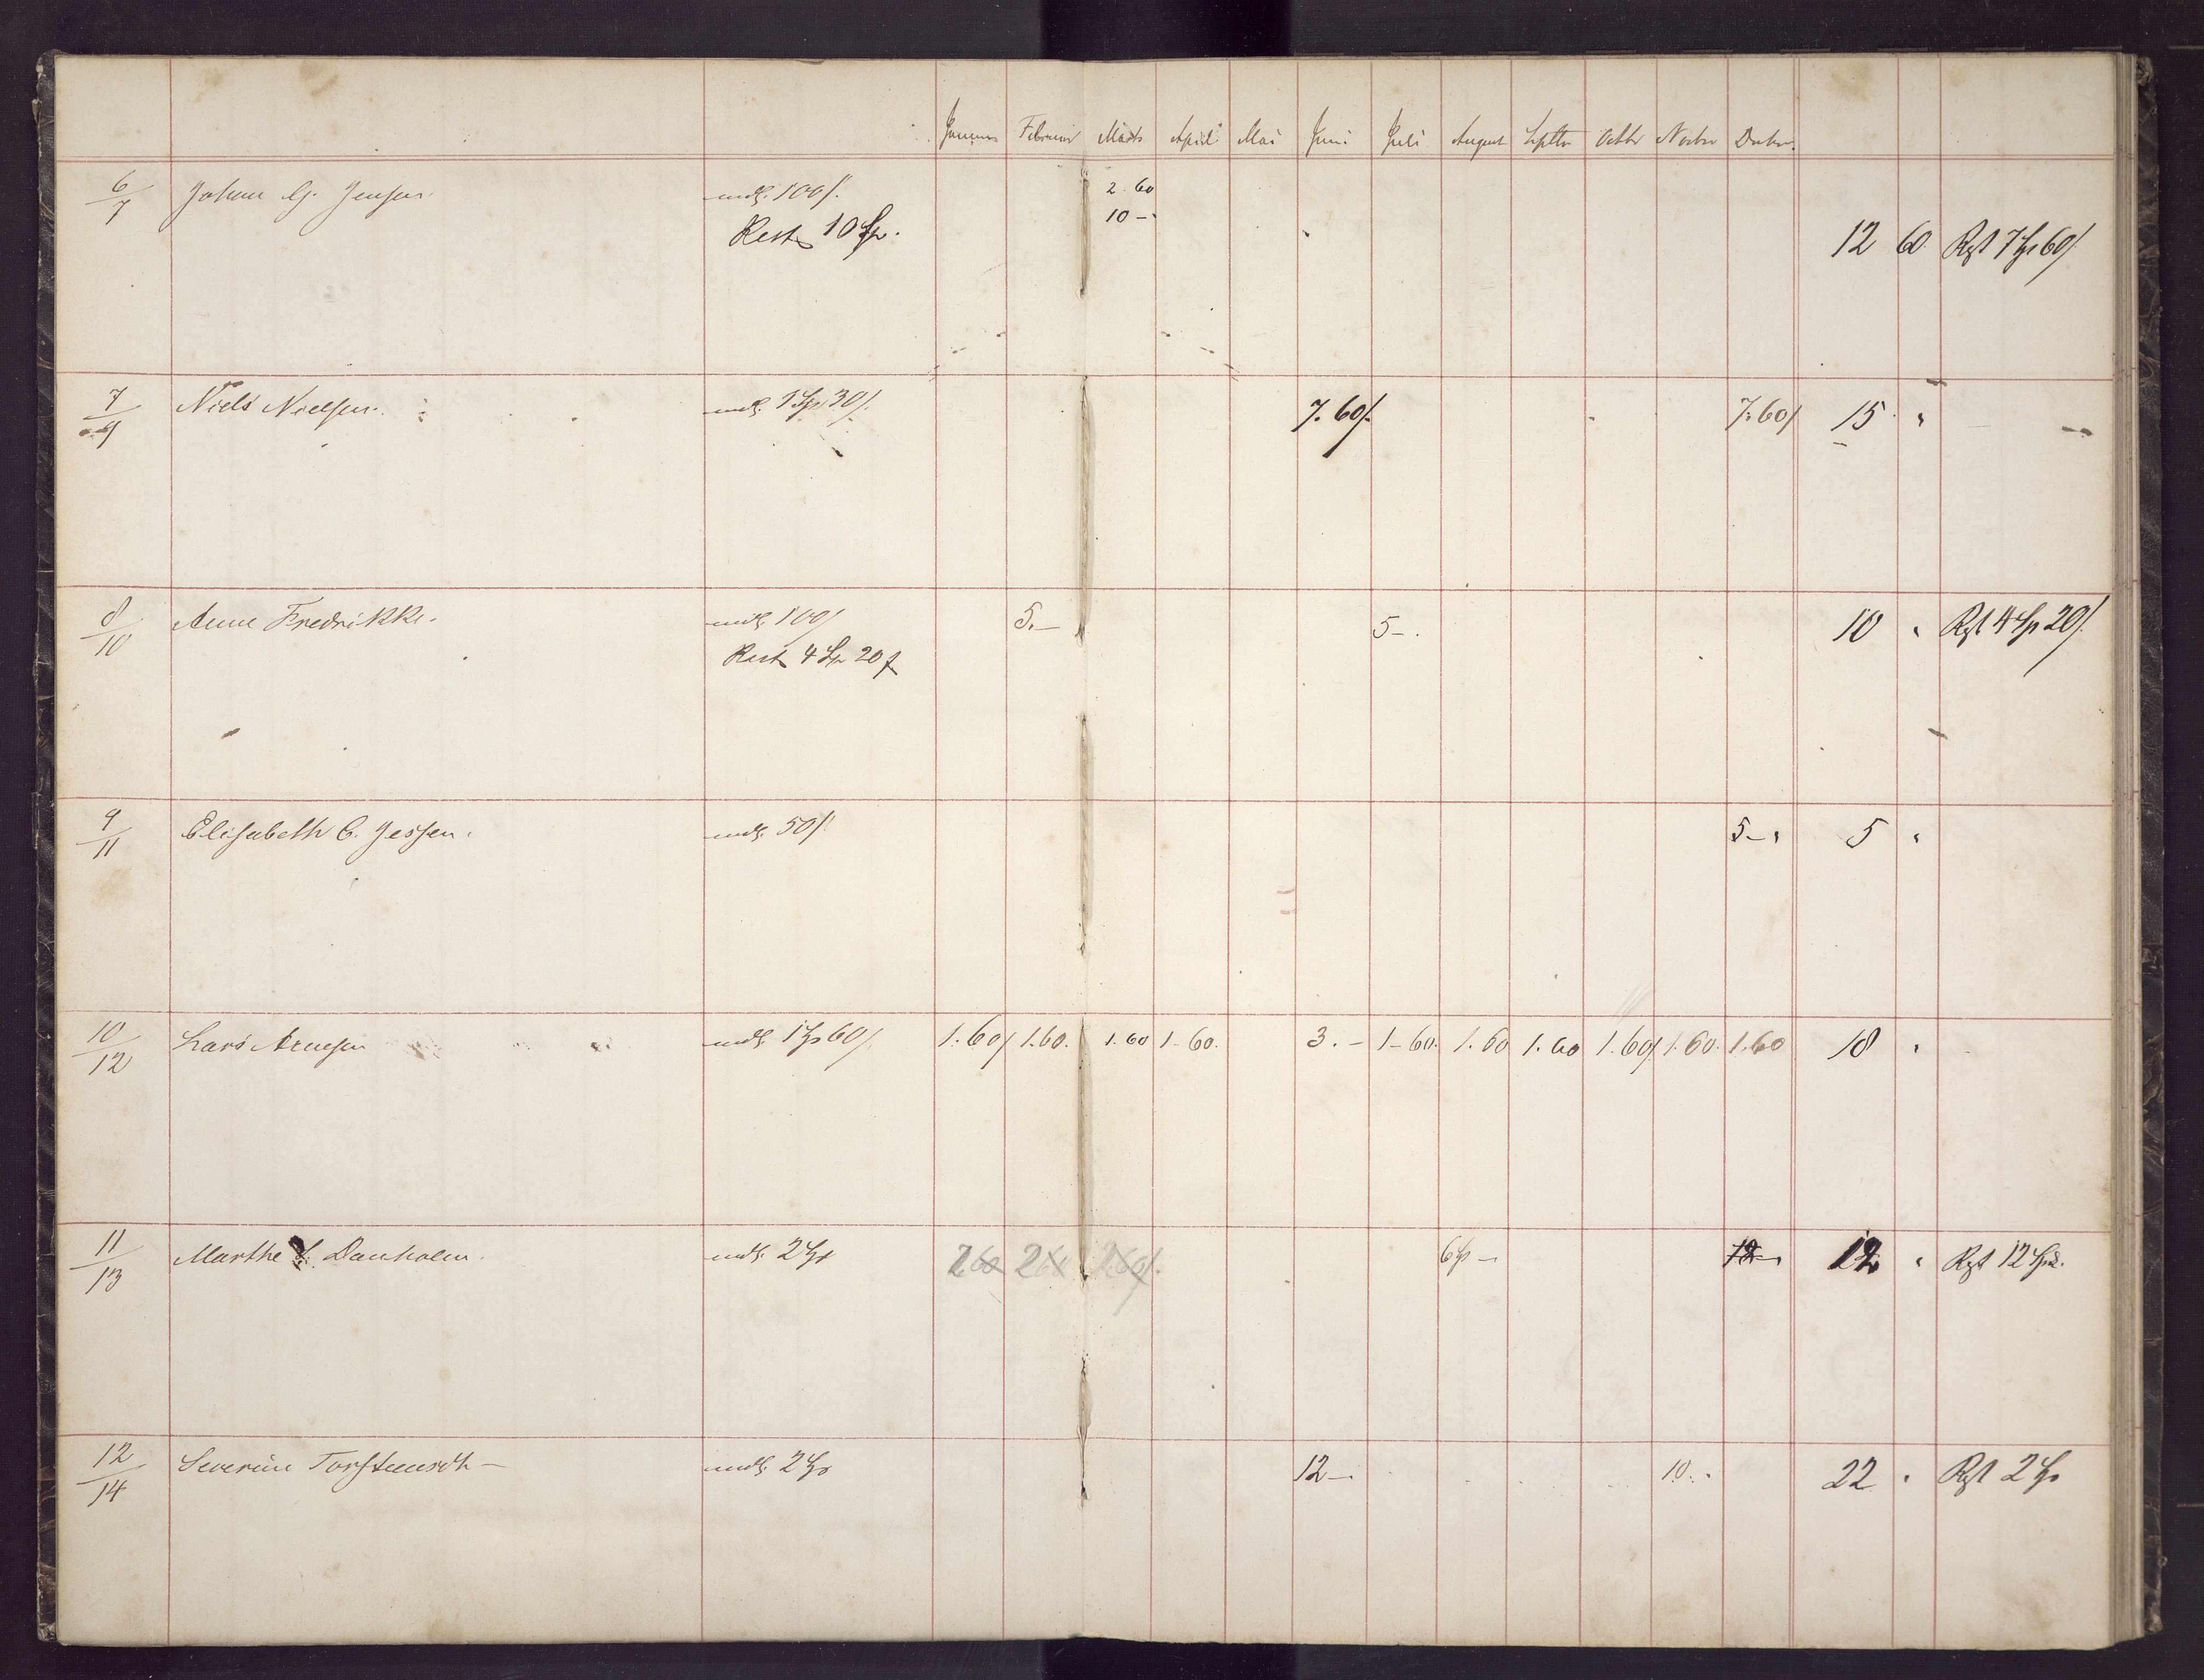 Januar Februar Marts April Mai Juni Juli August Septbr Octbr Novbr Decbr.
6/7 Johan G. Jensen. mdl. 100ß. 2. 60
Rest 10 Sp. 10 - 12 60 Rest 7 Sp 60ß
7/9 Niels Nielsen. mdl. 1 Sp 30ß. 7. 60ß. 7. 60ß 15 "
8/10 Anne Fredrikke. mdl. 100ß 5. - 5 - . 10 " Rest 4 Sp 20ß.
Rest 4 Sp 20 ß
9/11 Elisabeth C. Jessen. mdl. 50ß 5 - " 5 "
10/12 Lars Arnesen mdl. 1 Sp 60ß 1. 60ß 1. 60. 1. 60 1 - 60. 3. - 1 - 60. 1. 60 1. 60 1. 60ß 1. 60. 1. 60 18 "
11/13 Marthe Danholm. mdl. 2 Sp 2 60 2 60 2 60ß. 6 Sp - 12 - 12 " Rest 12 Sp.
12/14 Severine Torstensdtr - mdl. 2 Sp 12 - . 10. . 22 " Rest 2 Sp